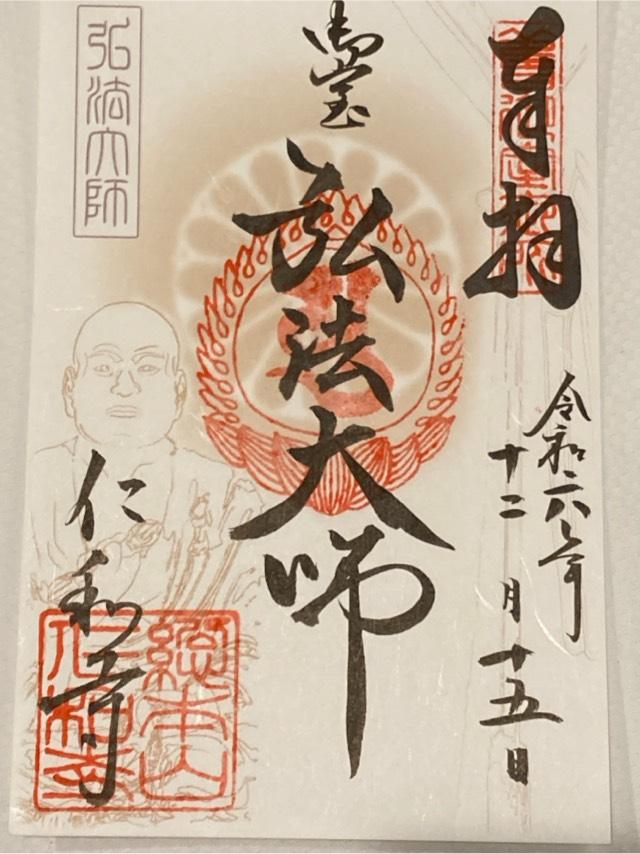 奉拝
令和六年
十二月十五日
弘法大師
仁和寺
弘法大師
総本山
仁和寺